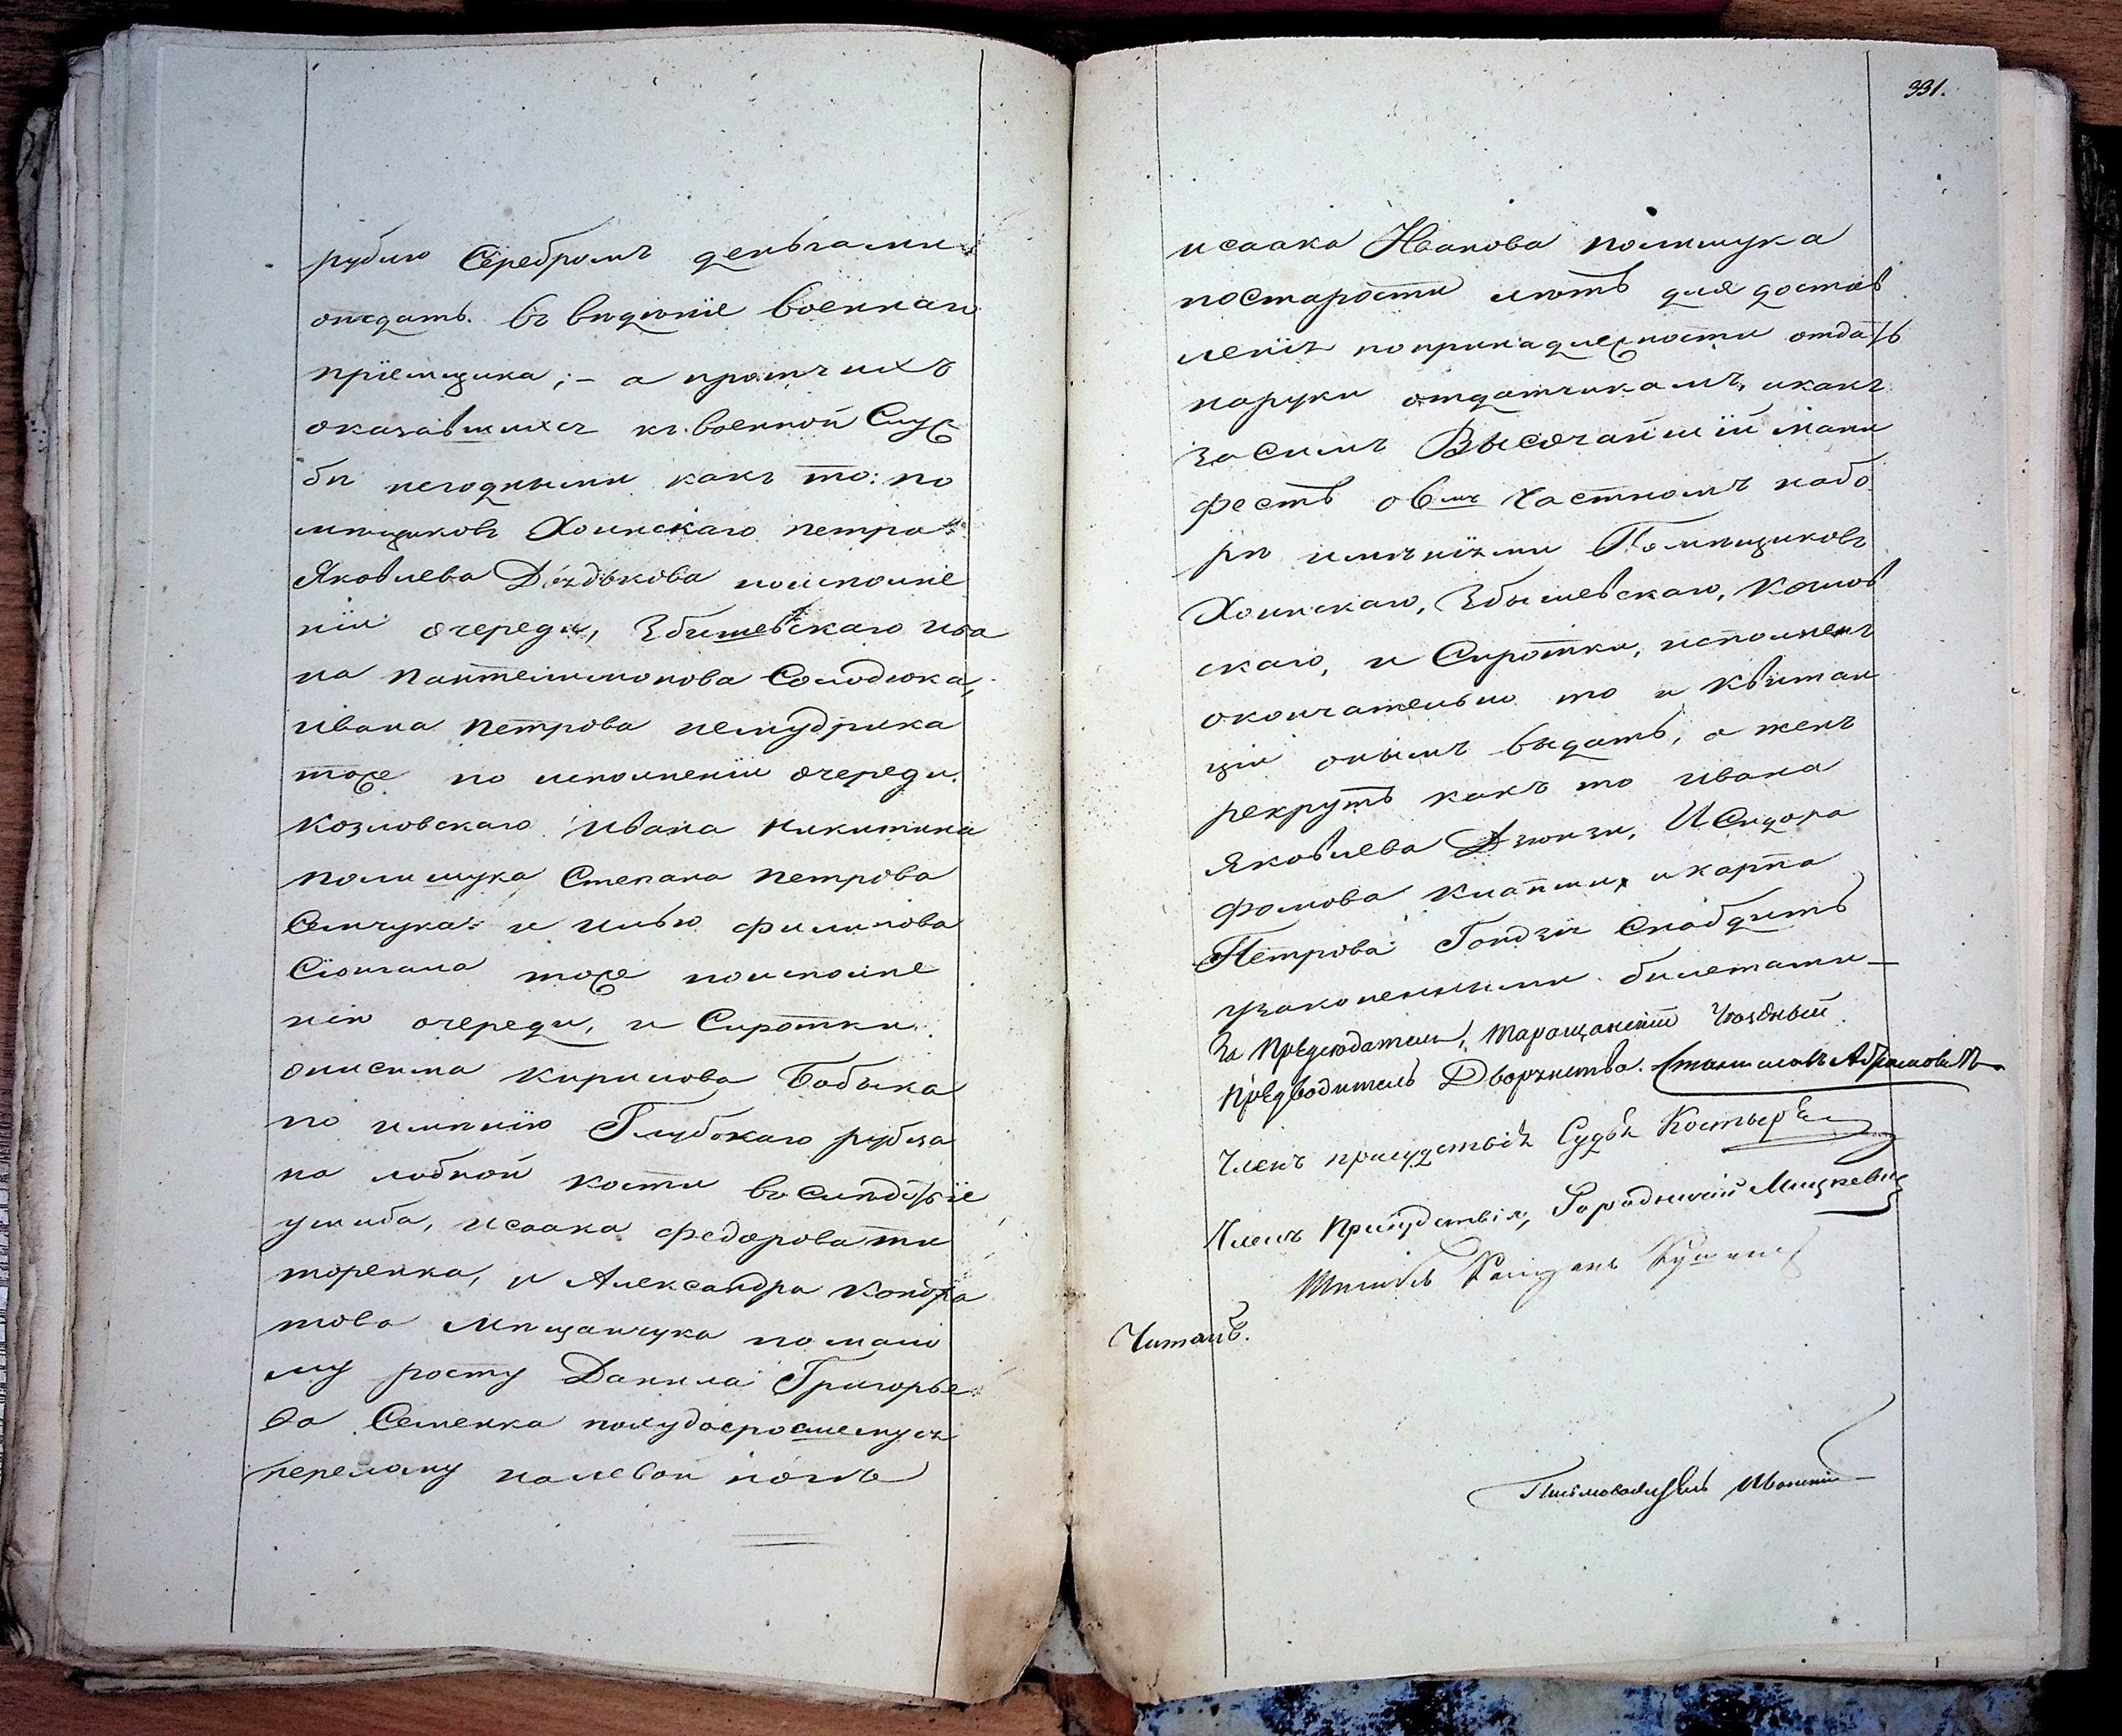 рублю Серебромъ деньгами
отдать въ вѣденіе военнаго
пріемщика; - а протчихъ
оказавшихся къ военной Служ
бѣ негодными какъ то: по
мѣщиковъ Хоинскаго петра
Яковлева Дяздькова поисполне
ніи очереди, Збышевскаго ива
на пантелимонова Солодюка,
ивана петрова немудрика
тоже по исполненіи очереди.
козловскаго ивана никитина
полищука Степана петрова
Семчука и илью филипова
тоже поисполне
нію очереди, и Сиротки
онисима кирилова Бабыка
по имѣнію Глубокаго рубца
на лобной кости
ушиба, исаака федорова ти
торенка, и Александра кондра
това мѣщанчука по мало
му росту Данила Григорье
ва Семенка похудосросшемуся
перелому налевой ногѣ
331.
исаака Иванова полищука
постарости лѣтъ для достав
ленія попринадлежности отдать
наруки отдатчикамъ, икакъ
засимъ Высочайшій мани
фестъ о 6мъ частномъ набо
рѣ имѣніями Помѣщиковъ
Хоинскаго, Збышевскаго, козлов
скаго, и Сиротки, исполненъ
окончательно то и квитан
ціи онымъ выдать, а женъ
рекрутъ какъ то ивана
Яковлева Дзюнзи, Исидора
фомова и карпа
Петрова Гондзя Снабдить
узаконенными билетами
За Предсѣдателя, таращанскій Уѣздный
Предводитель Дворянства. Станиславъ Абрамовичъ
Членъ присудствія Судья Костыр
Членъ Присудствія, Городничій Мицкевич
Читалъ.
Письмоводитель